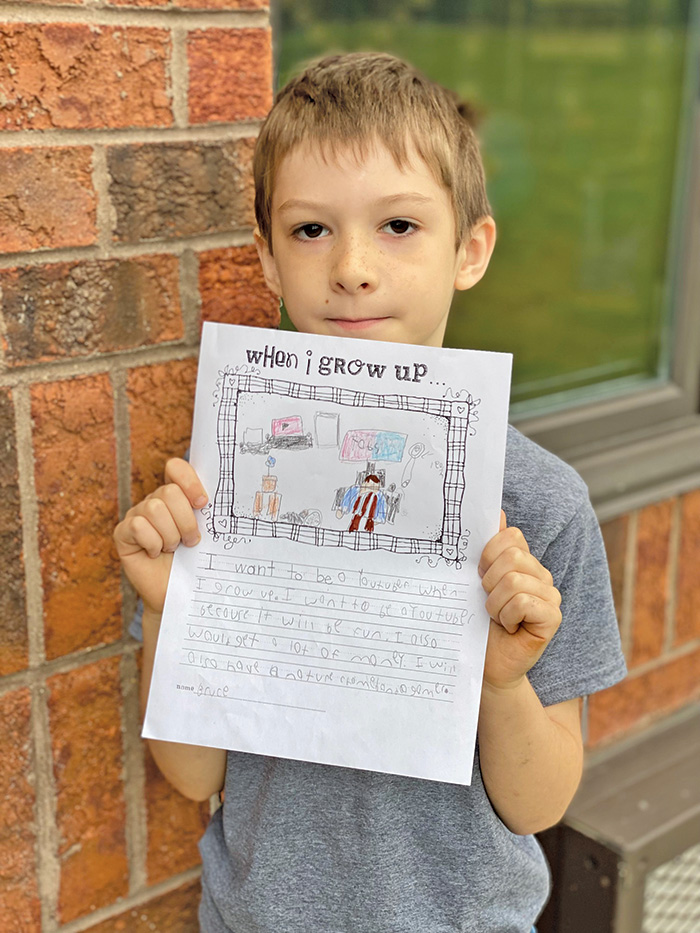 wHen i gRow up...
I want to be a Youtuber when
I grow up. I want to be a Youtuber
because it will be fun. I also
would get a lot of money. I will
also have a nature
name Bruce